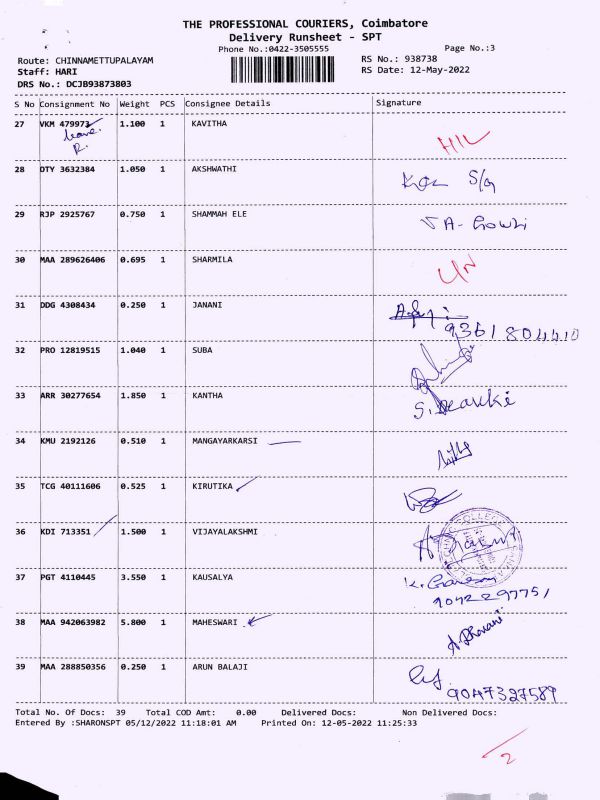 THE PROFESSIONAL COURIERS, Coimbatore
Delivery Runsheet - SPT
Phone No.:0422-3505555
Page No.:3
Route: CHINNAMETTUPALAYAM
RS No.: 938738
Staff: HARI
RS Date: 12-May-2022
DRS No.: DCJB93873803
S No Consignment No Weight PCS Consignee Details Signature
27 VKM 479973 1.100 1 KAVITHA
leave
R.
28 DTY 3632384 1.050 1 AKSHWATHI
S/o
29 RJP 2925767 0.750 1 SHAMMAH ELE
30 MAA 289626406 0.695 1 SHARMILA
31 DDG 4308434 0.250 1 JANANI
9361804410
32 PRO 12819515 1.040 1 SUBA
33 ARR 30277654 1.850 1 KANTHA
34 KMU 2192126 0.510 1 MANGAYARKARSI
35 TCG 40111606 0.525 1 KIRUTIKA
36 KDI 713351 1.500 1 VIJAYALAKSHMI
37 PGT 4110445 3.550 1 KAUSALYA
9042297751
38 MAA 942063982 5.800 1 MAHESWARI
39 MAA 288850356 0.250 1 ARUN BALAJI
9047327589
Total No. Of Docs: 39 Total COD Amt: 0.00 Delivered Docs: Non Delivered Docs:
Entered By :SHARONSPT 05/12/2022 11:18:01 AM Printed On: 12-05-2022 11:25:33
2